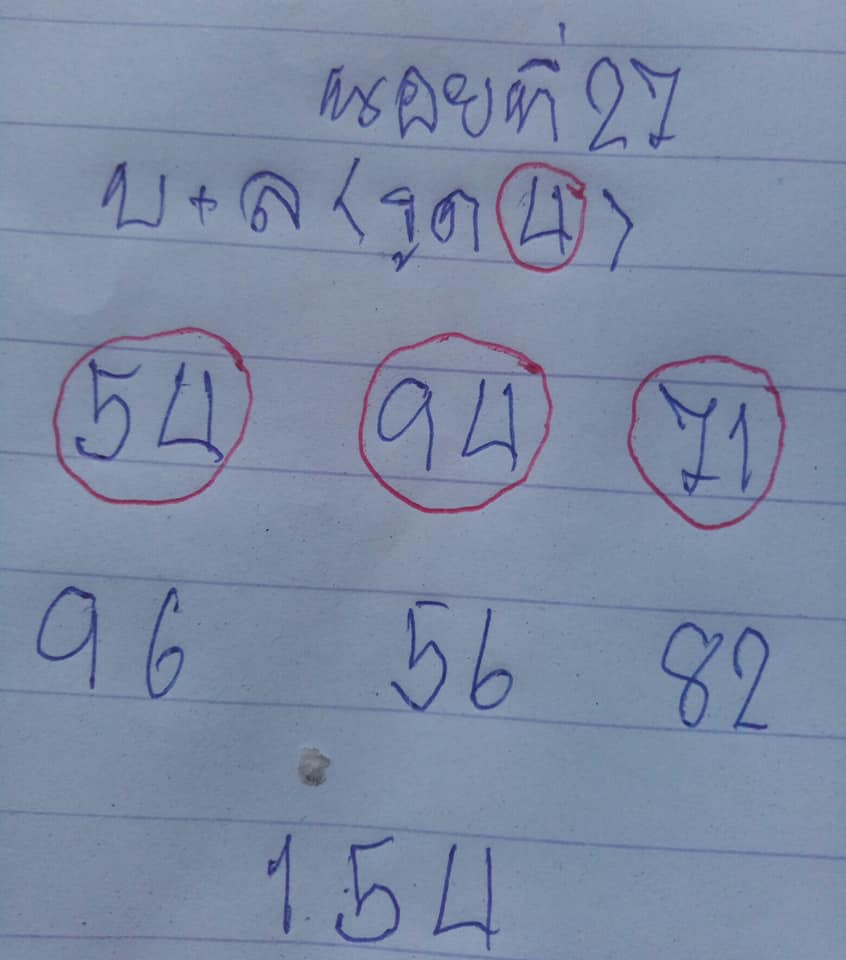 ฮานอยที่ 27
บ + ล < รูด 4 >
54 94 71
96 56 82
154